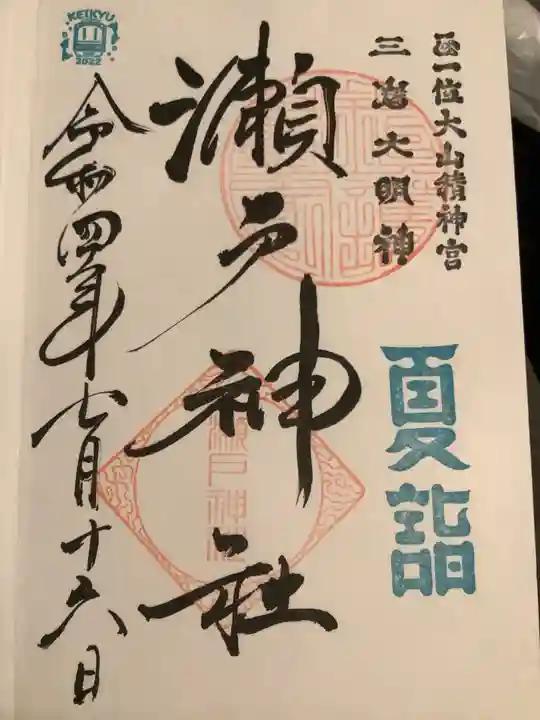 正一位大山積神宮
三嶌大明神
夏詣
瀬戸神社
瀬戸神社
令和四年七月十六日
KEIKYU
2022